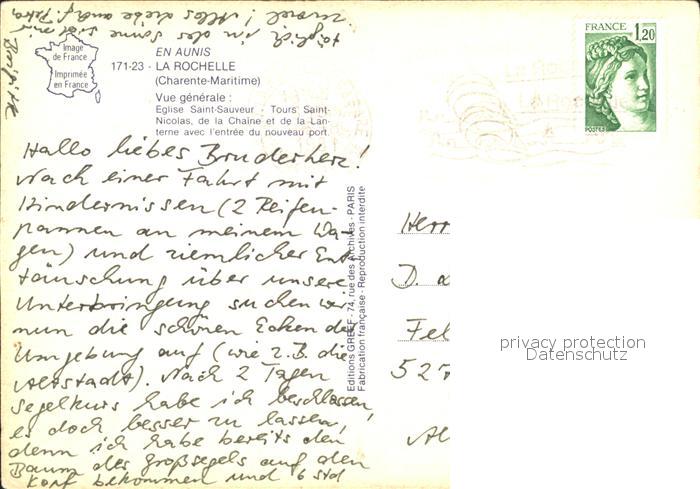 Image
de France
Imprimée
en France
EN AUNIS
171-23 - LA ROCHELLE
(Charente-Maritime)
Vue générale :
Eglise Saint-Sauveur - Tours Saint-
Nicolas, de la Chaîne et de la Lan-
terne avec l'entrée du nouveau port.
FRANCE
1,20
POSTES
Hallo liebes Bruderherz!
Nach einer Fahrt mit
Hindernissen (2 Reifen-
pannen an meinem Wa-
gen) und ziemlicher Ent
täuschung über unsere
Unterbringung suchen wir
nun die schönen Ecken der
Umgebung auf (wie z.B. die
Altstadt). Nach 2 Tagen
Segelkurs habe ich beschlossen,
es doch besser zu lassen,
denn ich habe bereits den
Baum des Großsegels auf den
Kopf bekommen und 6 Std
täglich in der Sonne sind mir
zuviel! Alles Liebe auch f. Petra
Editions GREFF - 74, rue des Archives - PARIS
Fabrication française - Reproduction interdite
Herr
D.
Fel
527
privacy protection
Datenschutz